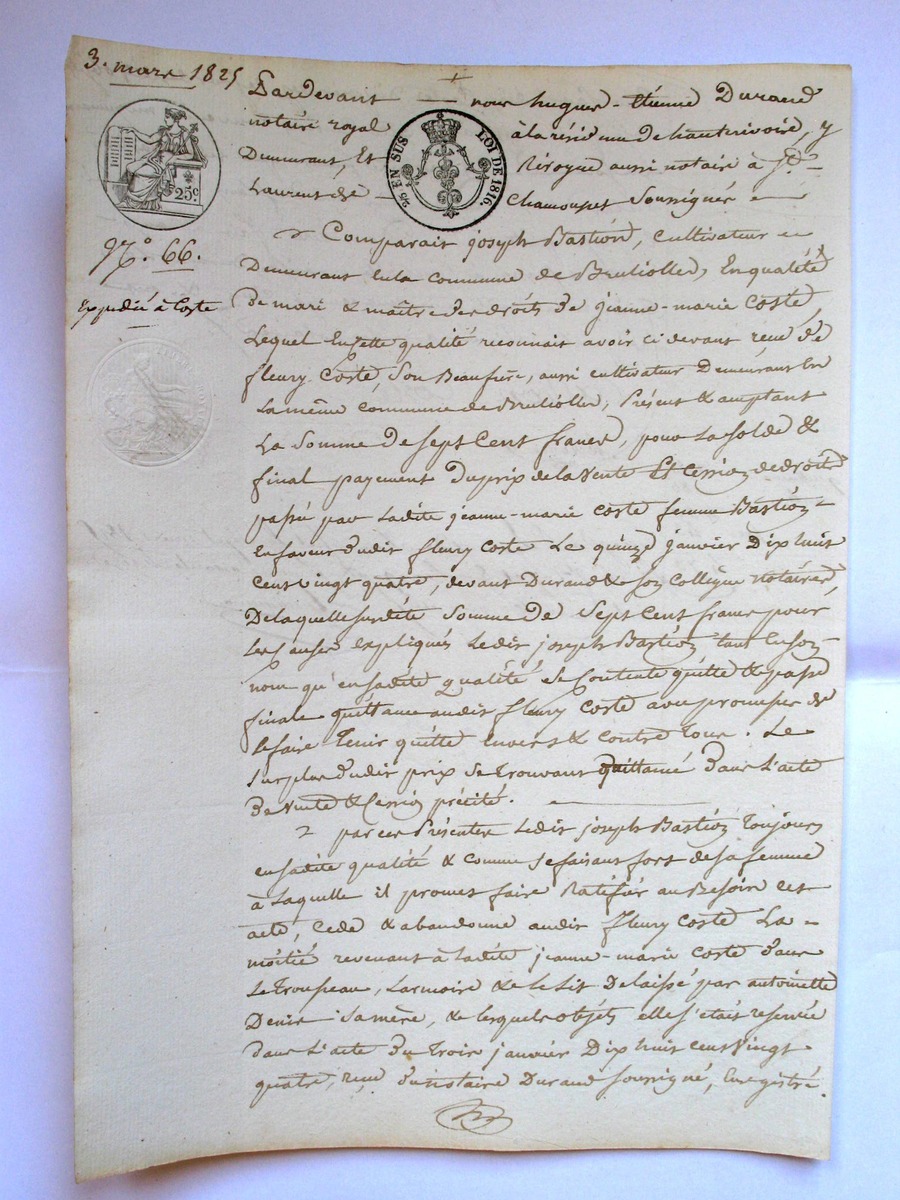 3. mars 1825
25c
25 EN SUS LOI DE 1816.
N.o 66.
Expedié à Coste
Pardevant — nous hugues-étienne Durand
notaire royal à la résidence de hauterivoire, y
Demeurant, Et Riroyne aussi notaire à St.
Laurent de Chamousset Soussignés
Comparait joseph Bastion, Cultivateur
Demeurant En la Commune de Brulioller, En qualité
de mari & maître des droits de jeanne-marie Coste
Lequel En cette qualité reconnait avoir ci devant reçu de
fleury Coste, Son Beaufrère, aussi cultivateur Demeurant En
La même commune de Brulioller, Présent & acceptant
La Somme De Sept Cent francs, pour La Solde &
final payement Du prix de la Vente Et Cession de droits
passé par Ladite jeanne-marie Coste femme Bastion
En faveur dudit fleury Coste Le quinze janvier Dix huit
Cent vingt quatre, devant Durand & son Collègue notaires,
De laquelle susdite Somme De Sept Cent francs pour
Les causes expliqués Ledit joseph Bastion tant En son
nom qu'en sadite qualité Se Contente quitte & passe
finale quittance audit fleury Coste avec promesse de
le faire Tenir quitte Envers & Contre Tous. Le
Surplus dudit prix Se trouvant quittancé dans L'acte
de vente & Cession précité.
par ces Présentes Ledit joseph Bastion Toujours
en sadite qualité & comme Se faisant fort de sa femme
à Laquelle il promet faire Ratifier au Besoin cet
acte, Cede & abandonne audit fleury Coste La
moitié revenant à Ladite jeanne-marie Coste dans
Le Troupeau, L'armoire & le Lit Delaissé par antoinette
Denis Sa mère, & lesquels objets elle s'était reservée
dans L'acte du trois janvier Dix huit cent Vingt
quatre, reçu du notaire Durand Soussigné, Enregistré